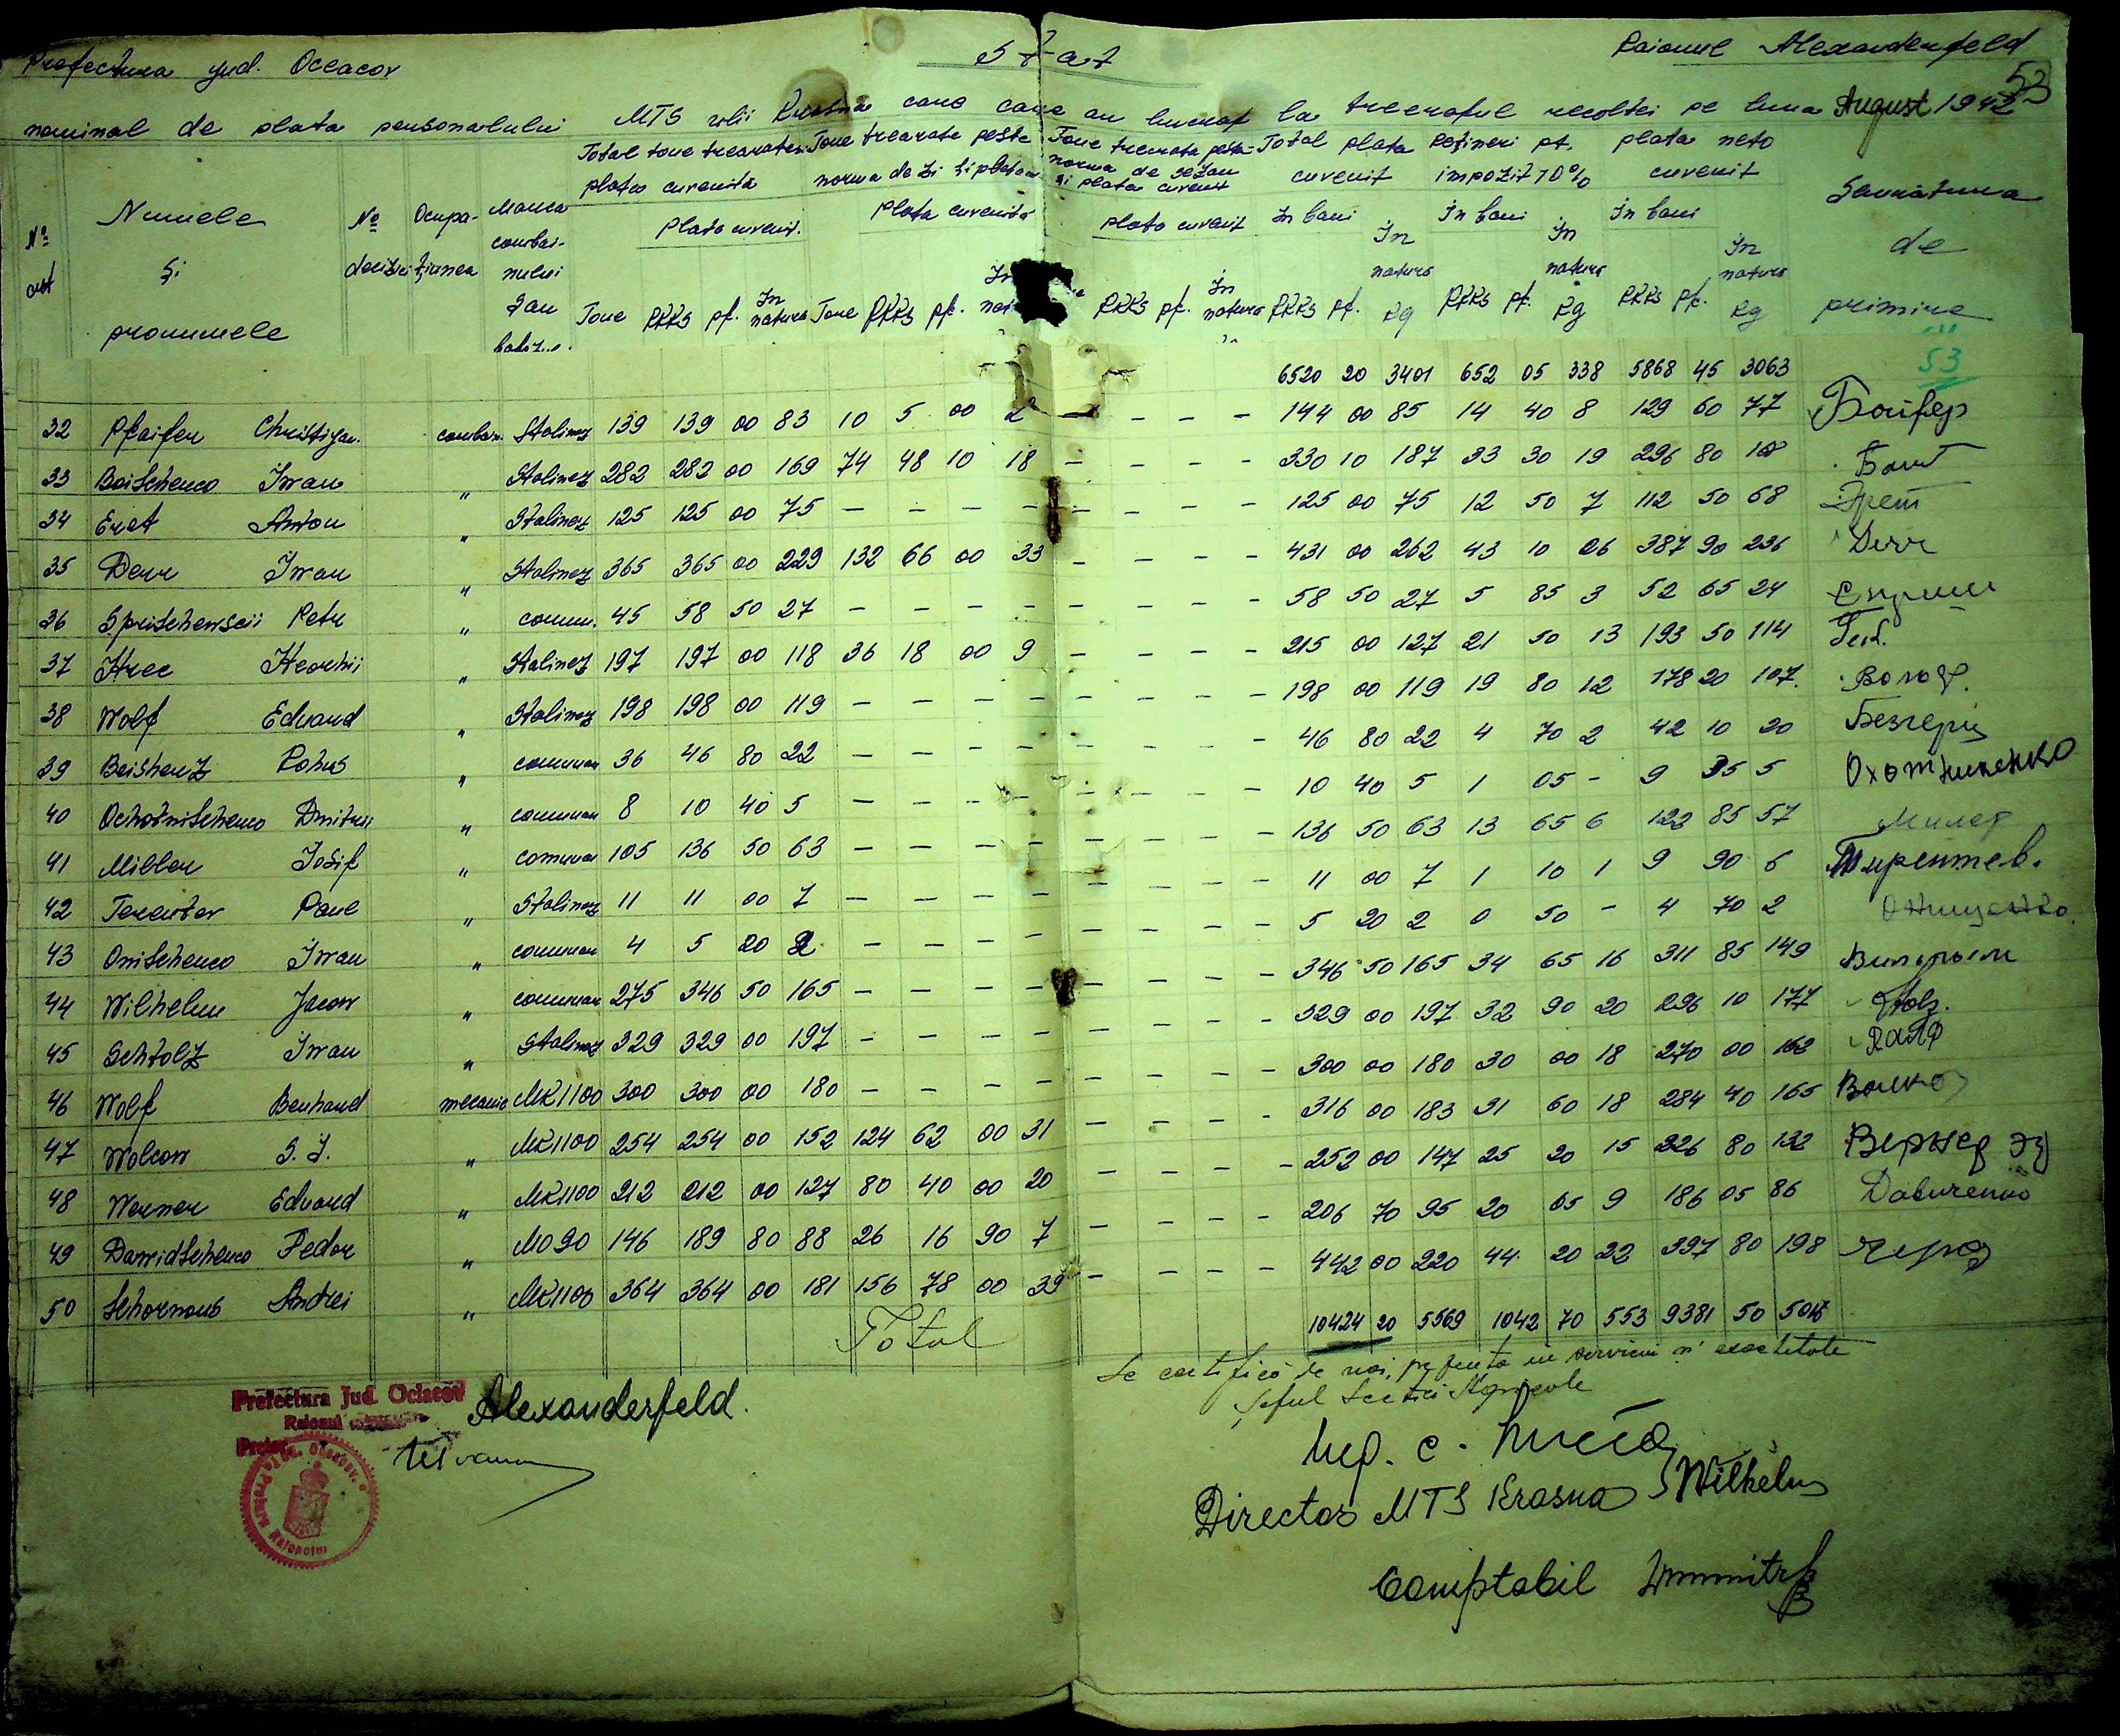 Prefectura jud. Oceacov Stat Raionul Alexanderfeld
53
nominal de plata personalului MTS care au lucrat la treeratul recoltei pe luna August 1942
Total tone trearate Tone trearate peste Tone treerata peste Total plata Reţineri pt. plata neto
plata cuvenita norma de zi si plata norma de sezon cuvenit impozit 10% cuvenit
si plata cuvenit
Nº crt Numele şi pronumele Nº deciziei Ocupaţiunea Marca combainului sau Plata cuvenit. Plata cuvenita plata cuvenit In bani In natura In bani In natura In bani In natura de primire
Tone RKKS pf. In natura Tone RKKS pf. In RKKS pf. In natura RKKS pf. Kg RKKS pf. Kg RKKS pf. Kg
53
6520 20 3401 652 05 338 5868 45 3063
32 Pfaifer Christiyan. combain. Stalinez 139 139 00 83 10 5 00 2 — — — — 144 00 85 14 40 8 129 60 77
33 Boitchenco Iwan " Stalinez 282 282 00 169 74 48 10 18 — — — — 330 10 187 33 30 19 296 80
34 Eret Anton " Stalinez 125 125 00 75 — — — — — — — — 125 00 75 12 50 7 112 50 68 Эрет
35 Derr Iwan " Stalinez 365 365 00 229 132 66 00 33 — — — — 431 00 262 43 10 26 387 90 236 Derr
36 Spritchewscii Petr " comm. 45 58 50 27 — — — — — — — — 58 50 27 5 85 3 52 65 24
37 Hrec Heorhii " Stalinez 197 197 00 118 36 18 00 9 — — — — 215 00 127 21 50 13 193 50 114
38 Wolf Eduard " Stalinez 198 198 00 119 — — — — — — — — 198 00 119 19 80 12 178 20 107.
39 Beishenz Rohus " commun 36 46 80 22 — — — — — — — — 46 80 22 4 70 2 42 10 20
40 Ochotnitchenco Dmitrii " commun 8 10 40 5 — — — — — — — — 10 40 5 1 05 - 9 35 5 Охотниченко
41 Miller Iosif " comuna 105 136 50 63 — — — — — — — — 136 50 63 13 65 6 122 85 57 Милер
42 Terentev Pavel " Stalinez 11 11 00 7 — — — — — — — — 11 00 7 1 10 1 9 90 6 Тирентев.
43 Onitchenco Iwan " commun 4 5 20 2 — — — — — — — — 5 20 2 0 50 - 4 70 2 Онищенко.
44 Wilhelm Jacow " commun 275 346 50 165 — — — — — — — — 346 50 165 34 65 16 311 85 149
45 Schtolz Iwan " Stalinez 329 329 00 197 — — — — — — — — 329 00 197 32 90 20 296 10 177
46 Wolf Benhard mecanic MK1100 300 300 00 180 — — — — — — — — 300 00 180 30 00 18 270 00 162
47 Wolcow S. I. " MK1100 254 254 00 152 124 62 00 31 — — — — 316 00 183 31 60 18 284 40 165 Волков
48 Werner Eduard " MK1100 212 212 00 127 80 40 00 20 — — — — 252 00 147 25 20 15 226 80 132 Вернер Эд
49 Dawidtchenco Fedor " MO90 146 189 80 88 26 16 90 7 — — — — 206 70 95 20 65 9 186 05 86
50 Tchornous Andrei " MK1100 364 364 00 181 156 78 00 39 — — — — 442 00 220 44 20 22 397 80 198
Total 10424 20 5569 1042 70 553 9381 50
Se certifică de noi, prezenta in serviciu si exactitate
Şeful Sectiei Agricole
Prefectura Jud. Oclacov
Raionul Alexanderfeld.
Pretor
Ing. C.
Director MTS Krasna Wilhelm
Comptabil